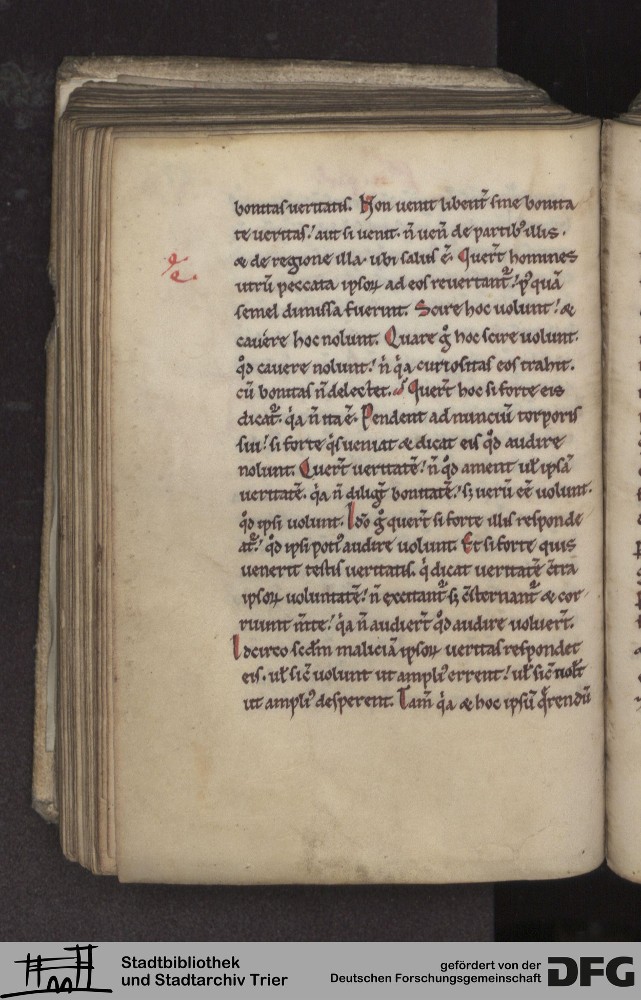 bonitas veritatis. Non venit libent̄ sine bonita
te veritas. aut si venit. n̄ veñ de partibꝰ illis.
& de regione illa. ubi salus ē. Quert̄ homines
utrū peccata ipsoꝝ ad eos revertant᷑. pꝰquā
semel dimissa fuerint. Scire hoc volunt. &
cavere hoc nolunt. Quare g̊ hoc scire volunt.
qd̄ cavere nolunt. n̄ q̇a curiositas eos trahit.
cū bonitas n̄ delectet. Quert̄ hoc si forte eis
dicat᷑. q̇a n̄ ita ē. Pendent ad nunciū torporis
sui. si forte q̇s veniat & dicat eis qd̄ audire
nolunt. Quert̄ veritatē. n̄ qd̄ ament ul̄ ipsā
veritatē. q̇a n̄ diligt̄ bonitatē. sꝫ verū eē volunt.
qd̄ ipsi volunt. Idō g̊ quert̄ si forte illis responde
at᷑. qd̄ ipsi potiꝰ audire volunt. Et si forte quis
venerit testis veritatis. q̇ dicat veritatē c̄tra
ipsoꝝ voluntatē. n̄ excitant᷑ sꝫ c̄sternant᷑ & cor
ruunt m̄te. q̇a n̄ audiert̄ qd̄ audire voluert̄.
Idcirco scd̄m maliciā ipsoꝝ veritas respondet
eis. ul̄ sic̄ volunt ut ampliꝰ errent. ul̄ sic̄ nolt̄
ut ampliꝰ desperent. Tam̄ q̇a & hoc ipsū q̄rendū
Stadtbibliothek
und Stadtarchiv Trier
gefördert von der
Deutschen Forschungsgemeinschaft
DFG